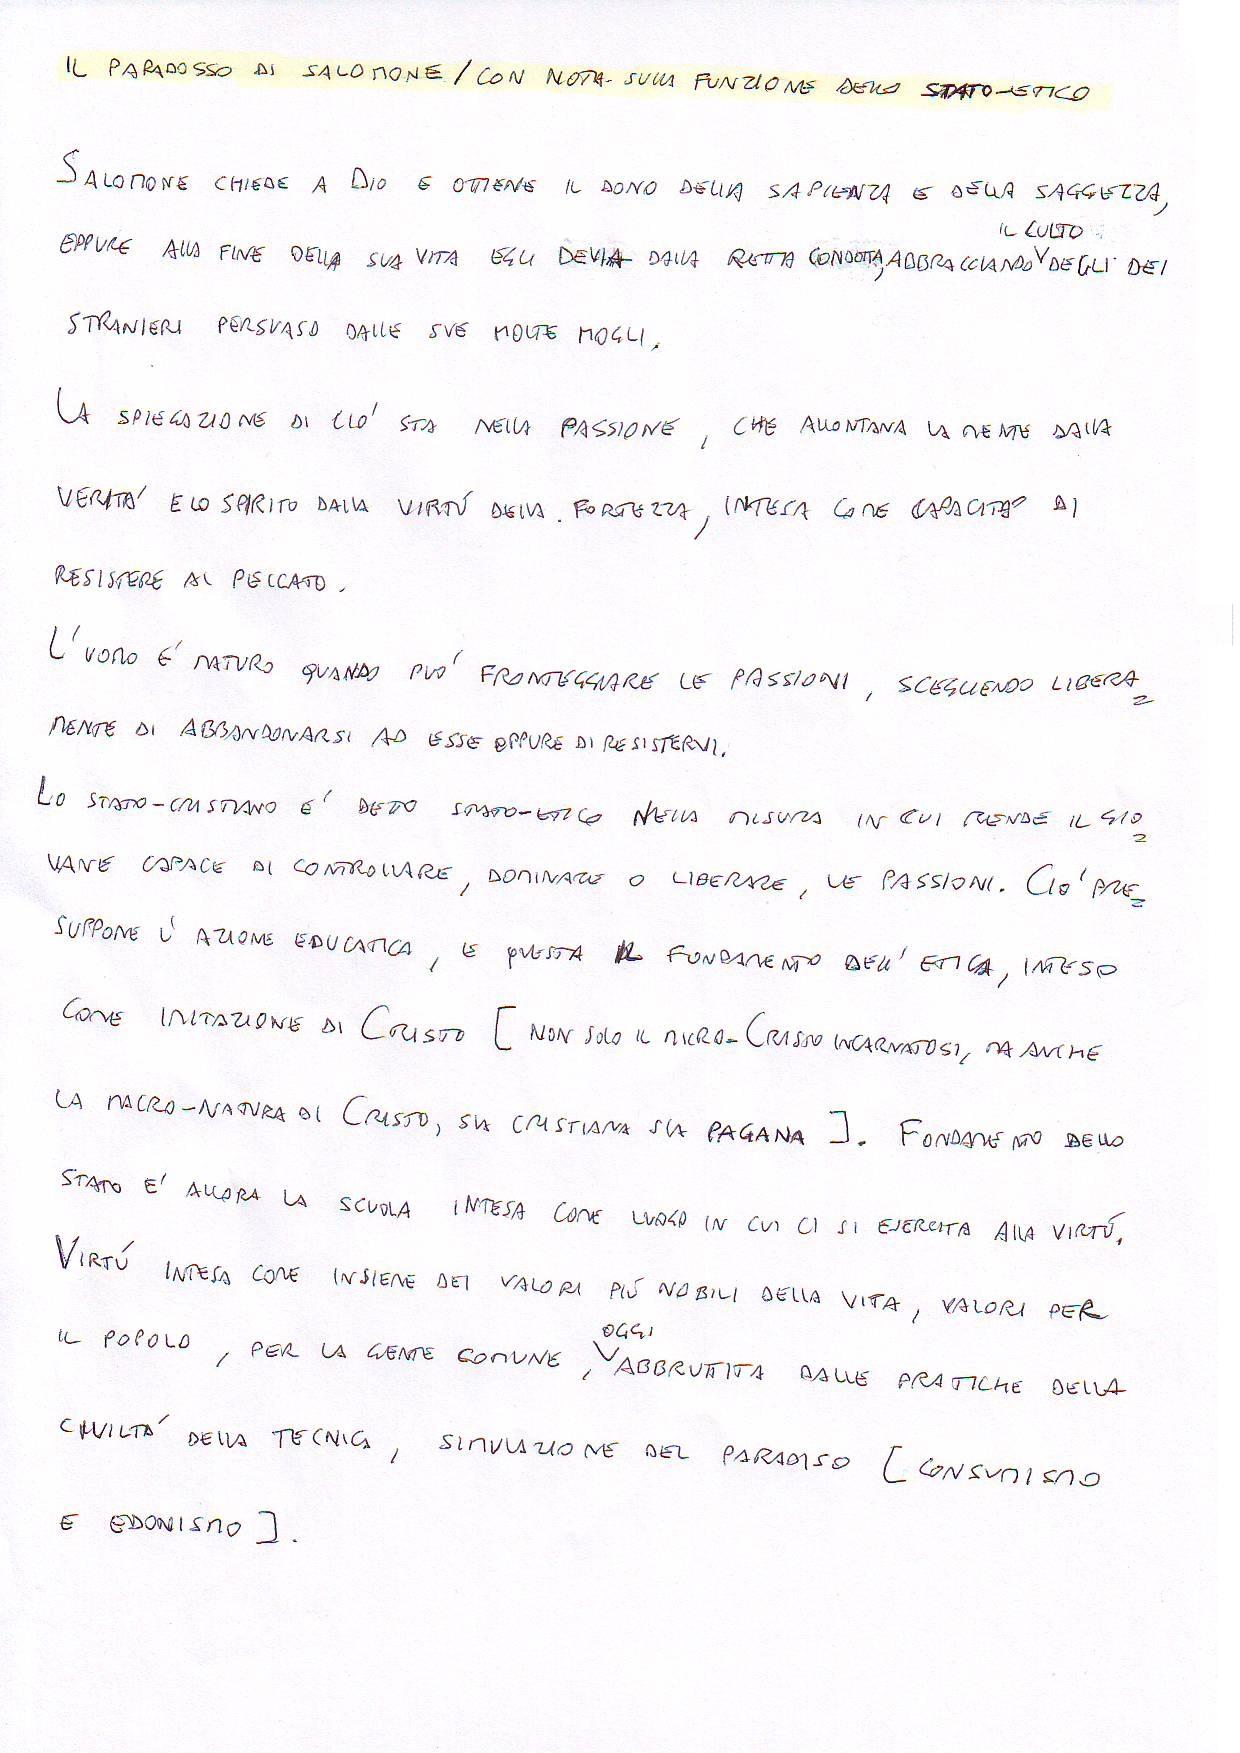 IL PARADOSSO DI SALOMONE / CON NOTA SULLA FUNZIONE DELLO STATO-ETICO
SALOMONE CHIEDE A DIO E OTTIENE IL DONO DELLA SAPIENZA E DELLA SAGGEZZA,
EPPURE ALLA FINE DELLA SUA VITA EGLI DEVIA DALLA RETTA CONDOTTA, ABBRACCIANDO IL CULTO DEGLI DEI
STRANIERI PERSUASO DALLE SUE MOLTE MOGLI.
LA SPIEGAZIONE DI CIO' STA NELLA PASSIONE, CHE ALLONTANA LA MENTE DALLA
VERITA' E LO SPIRITO DALLA VIRTÚ DELLA FORTEZZA, INTESA COME CAPACITA' DI
RESISTERE AL PECCATO.
L'UOMO E' MATURO QUANDO PUO' FRONTEGGIARE LE PASSIONI, SCEGLIENDO LIBERA=
MENTE DI ABBANDONARSI AD ESSE OPPURE DI RESISTERVI.
LO STATO-CRISTIANO E' DETTO STATO-ETICO NELLA MISURA IN CUI RENDE IL GIO=
VANE CAPACE DI CONTROLLARE, DOMINARE O LIBERARE, LE PASSIONI. CIO' PRE=
SUPPONE L'AZIONE EDUCATICA, E QUESTA IL FONDAMENTO DELL'ETICA, INTESO
COME IMITAZIONE DI CRISTO [NON SOLO IL MICRO-CRISTO INCARNATOSI, MA ANCHE
LA MACRO-NATURA DI CRISTO, SIA CRISTIANA SIA PAGANA]. FONDAMENTO DELLO
STATO E' ALLORA LA SCUOLA INTESA COME LUOGO IN CUI CI SI ESERCITA ALLA VIRTÚ.
VIRTÚ INTESA COME INSIEME DEI VALORI PIÚ NOBILI DELLA VITA, VALORI PER
IL POPOLO, PER LA GENTE COMUNE, OGGI ABBRUTTITA DALLE PRATICHE DELLA
CIVILTA' DELLA TECNICA, SIMULAZIONE DEL PARADISO [CONSUMISMO
E EDONISMO].